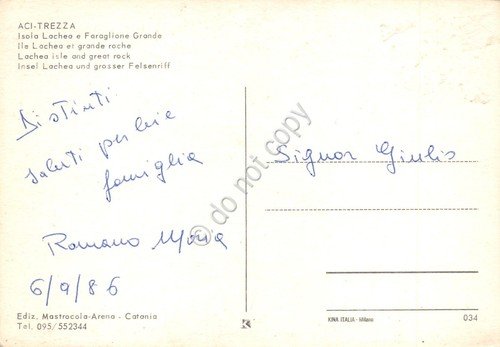 ACI-TREZZA
Isola Lachea e Faraglione Grande
Ile Lachea et grande roche
Lachea isle and great rock
Insel Lachea und grosser Felsenriff
Distinti
saluti per lei e
famiglia
Romano Maria
6/9/86
Signor Giulio
© do not copy
Ediz. Mastrocola-Arena - Catania
Tel. 095/552344
KINA ITALIA - Milano
034